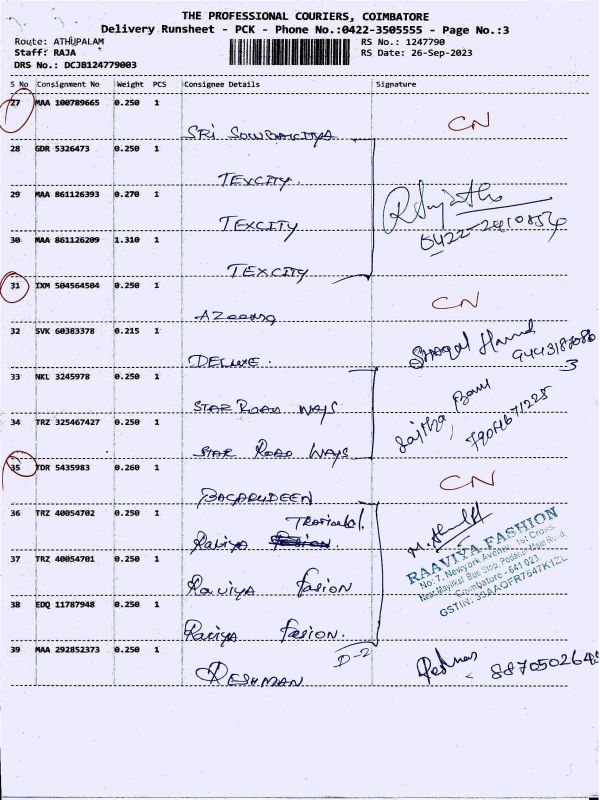 THE PROFESSIONAL COURIERS, COIMBATORE
Delivery Runsheet - PCK - Phone No.:0422-3505555 - Page No.:3
Route: ATHUPALAM
RS No.: 1247790
Staff: RAJA
RS Date: 26-Sep-2023
DRS No.: DCJB124779003
S No Consignment No Weight PCS Consignee Details Signature
27 MAA 100789665 0.250 1
CN
SRi
28 GDR 5326473 0.250 1
TEXCITY.
29 MAA 861126393 0.270 1
TEXCITY
30 MAA 861126209 1.310 1
TEXCITY
31 IXM 504564504 0.250 1
CN
32 SVK 60383378 0.215 1
DELUXE.
33 NKL 3245978 0.250 1
STAR ROAD WAYS
34 TRZ 325467427 0.250 1
STAR ROAD WAYS
35 TDR 5435983 0.260 1
CN
36 TRZ 40054702 0.250 1
Raviya
37 TRZ 40054701 0.250 1
Raviya Fasion
38 EDQ 11787948 0.250 1
Raviya Fasion.
RAAVIYA FASHION
No: 7, Newyork Avenue, 1st Cross,
Coimbatore - 641 023.
D-2
39 MAA 292852373 0.250 1
RESHMAN